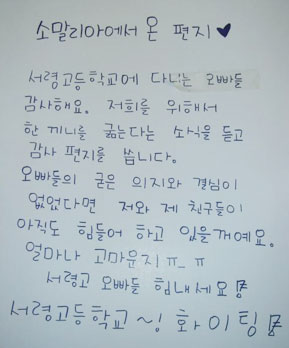 소말리아에서 온 편지 ♥
서령고등학교에 다니는 오빠들
감사해요. 저희를 위해서
한 끼니를 굶는다는 소식을 듣고
감사 편지를 씁니다.
오빠들의 굳은 의지와 결심이
없었다면 저와 제 친구들이
아직도 힘들어 하고 있을꺼예요.
얼마나 고마운지 ㅠ_ㅠ
서령고 오빠들 힘내세요!
서령고등학교~! 화이팅!